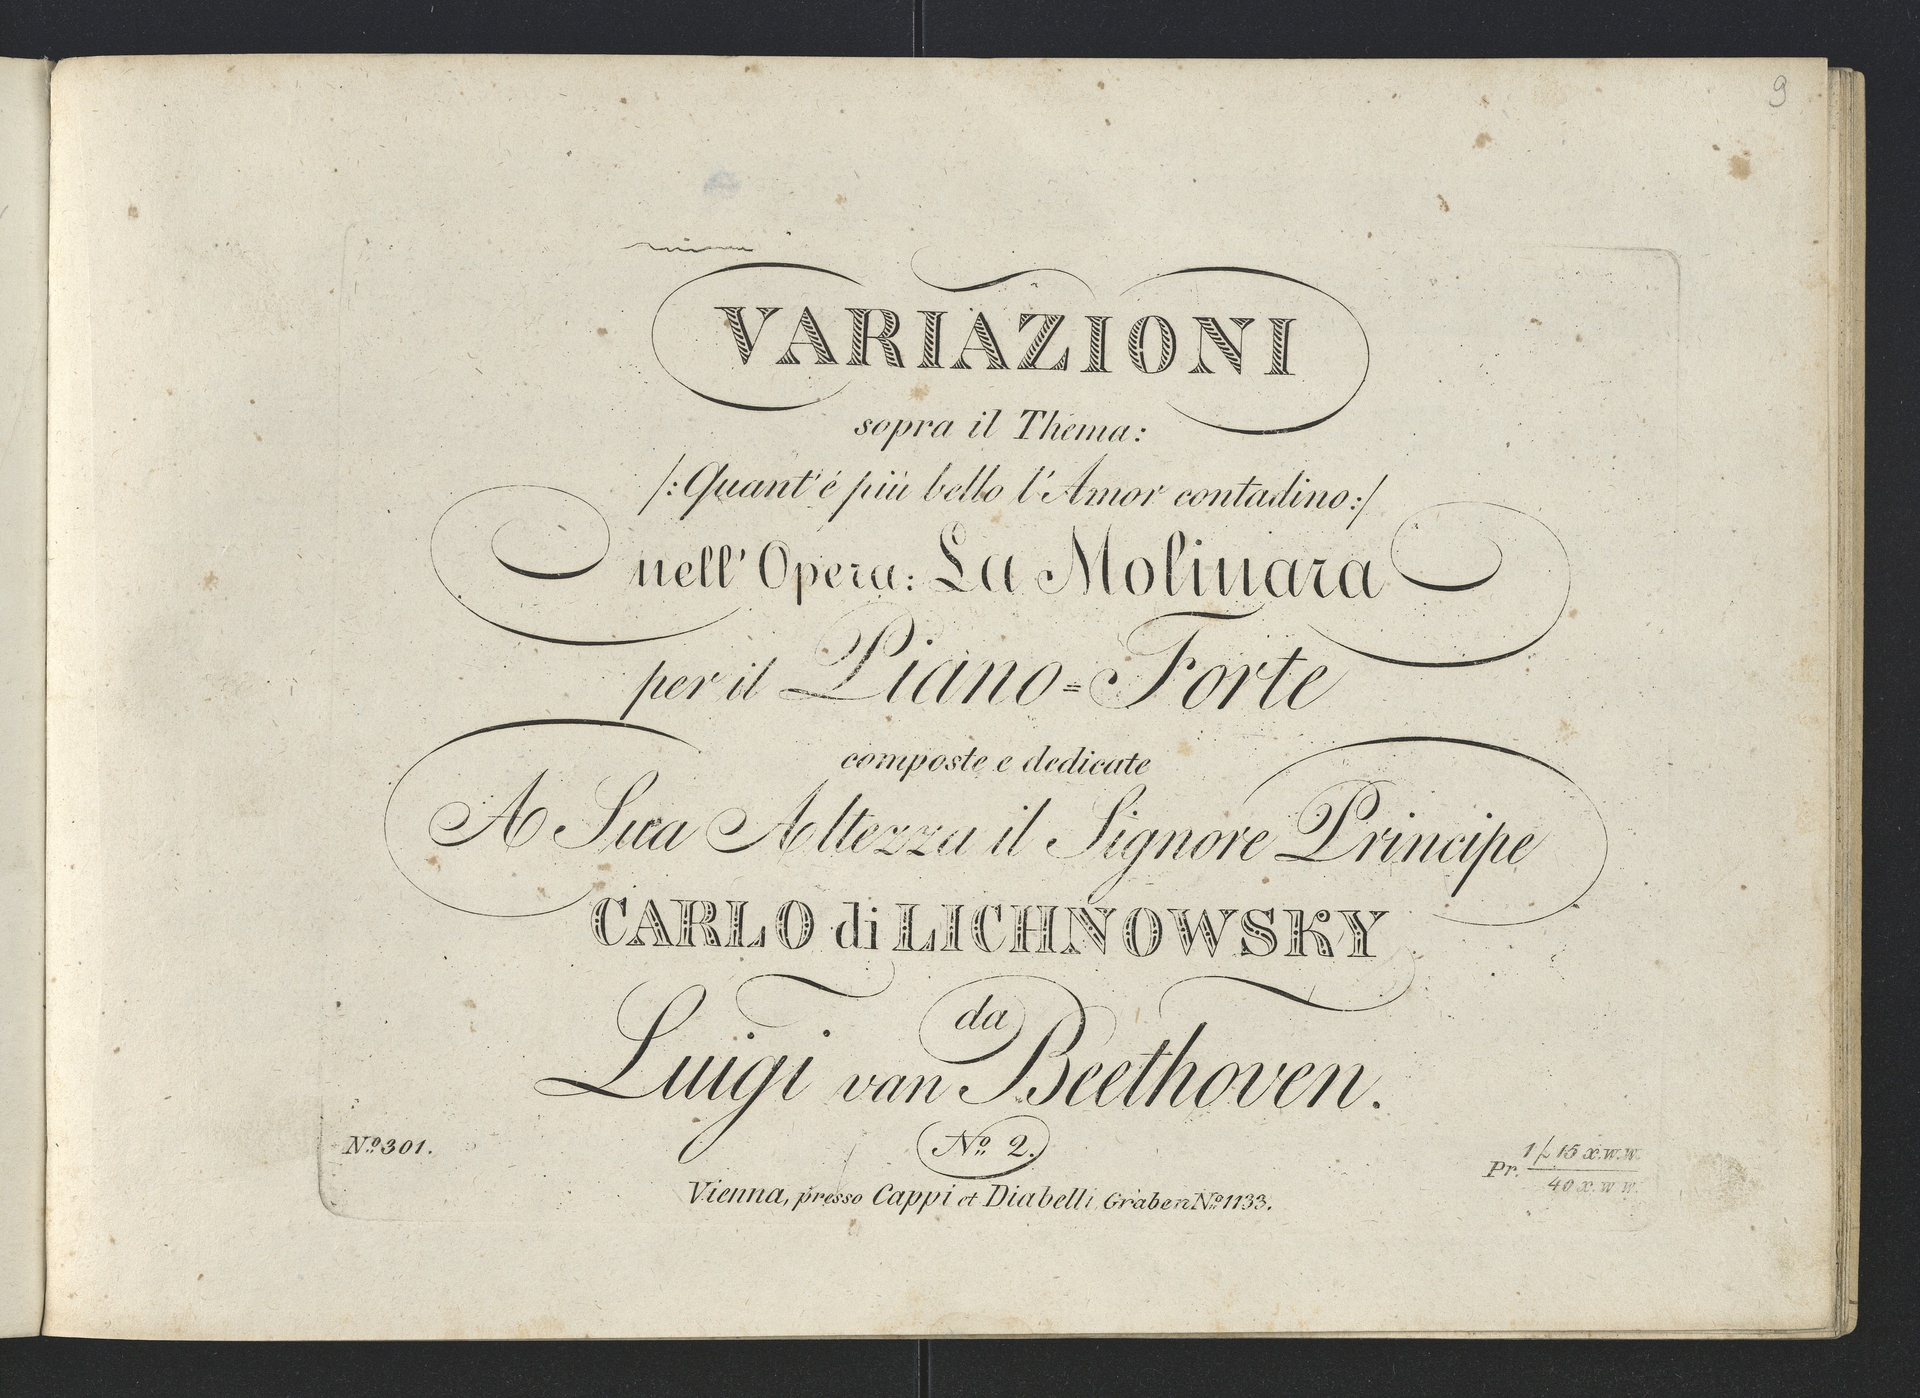 9
VARIAZIONI
sopra il Thema:
/:Quant'é più bello l'Amor contadino:/
nell'Opera: La Molinara
per il Piano=Forte
composte e dedicate
A Sua Altezza il Signore Principe
CARLO di LICHNOWSKY
da
Luigi van Beethoven.
No. 301.
No. 2.
Pr. 1 f. 15 x. w. w.
40 x. w. w.
Vienna, presso Cappi et Diabelli, Graben No. 1133.